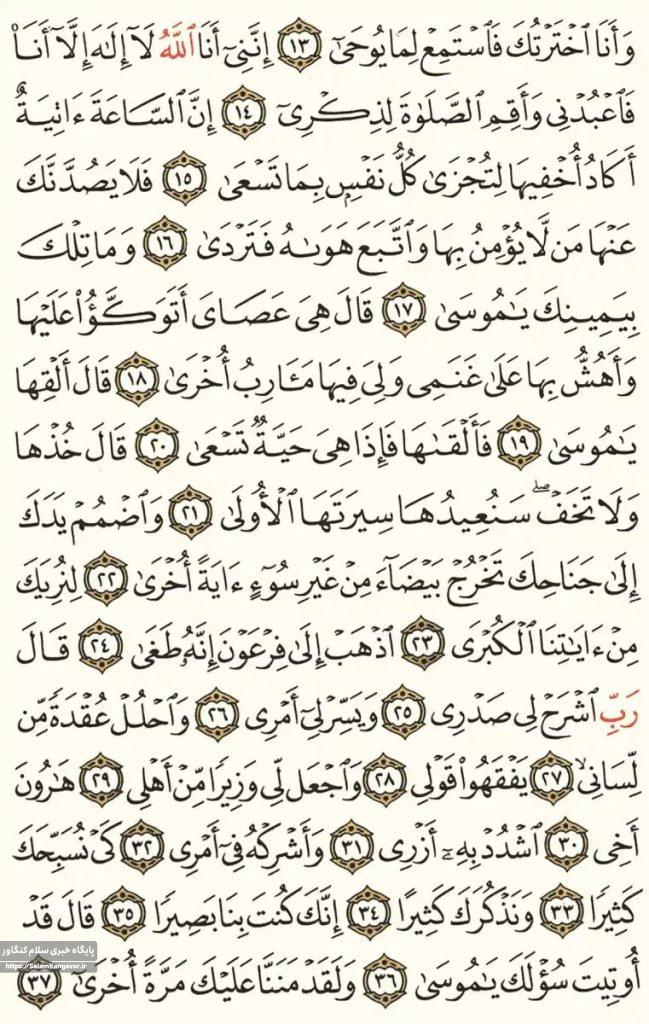 وَأَنَا ٱخۡتَرۡتُكَ فَٱسۡتَمِعۡ لِمَا يُوحَىٰٓ ١٣ إِنَّنِيٓ أَنَا ٱللَّهُ لَآ إِلَٰهَ إِلَّآ أَنَا۠
فَٱعۡبُدۡنِي وَأَقِمِ ٱلصَّلَوٰةَ لِذِكۡرِيٓ ١٤ إِنَّ ٱلسَّاعَةَ ءَاتِيَةٌ
أَكَادُ أُخۡفِيهَا لِتُجۡزَىٰ كُلُّ نَفۡسِۭ بِمَا تَسۡعَىٰ ١٥ فَلَا يَصُدَّنَّكَ
عَنۡهَا مَن لَّا يُؤۡمِنُ بِهَا وَٱتَّبَعَ هَوَىٰهُ فَتَرۡدَىٰ ١٦ وَمَا تِلۡكَ
بِيَمِينِكَ يَٰمُوسَىٰ ١٧ قَالَ هِيَ عَصَايَ أَتَوَكَّؤُاْ عَلَيۡهَا
وَأَهُشُّ بِهَا عَلَىٰ غَنَمِي وَلِيَ فِيهَا مَـَٔارِبُ أُخۡرَىٰ ١٨ قَالَ أَلۡقِهَا
يَٰمُوسَىٰ ١٩ فَأَلۡقَىٰهَا فَإِذَا هِيَ حَيَّةٞ تَسۡعَىٰ ٢٠ قَالَ خُذۡهَا
وَلَا تَخَفۡۖ سَنُعِيدُهَا سِيرَتَهَا ٱلۡأُولَىٰ ٢١ وَٱضۡمُمۡ يَدَكَ
إِلَىٰ جَنَاحِكَ تَخۡرُجۡ بَيۡضَآءَ مِنۡ غَيۡرِ سُوٓءٍ ءَايَةً أُخۡرَىٰ ٢٢ لِنُرِيَكَ
مِنۡ ءَايَٰتِنَا ٱلۡكُبۡرَى ٢٣ ٱذۡهَبۡ إِلَىٰ فِرۡعَوۡنَ إِنَّهُۥ طَغَىٰ ٢٤ قَالَ
رَبِّ ٱشۡرَحۡ لِي صَدۡرِي ٢٥ وَيَسِّرۡ لِيٓ أَمۡرِي ٢٦ وَٱحۡلُلۡ عُقۡدَةٗ مِّن
لِّسَانِي ٢٧ يَفۡقَهُواْ قَوۡلِي ٢٨ وَٱجۡعَل لِّي وَزِيرٗا مِّنۡ أَهۡلِي ٢٩ هَٰرُونَ
أَخِي ٣٠ ٱشۡدُدۡ بِهِۦٓ أَزۡرِي ٣١ وَأَشۡرِكۡهُ فِيٓ أَمۡرِي ٣٢ كَيۡ نُسَبِّحَكَ
كَثِيرٗا ٣٣ وَنَذۡكُرَكَ كَثِيرًا ٣٤ إِنَّكَ كُنتَ بِنَا بَصِيرٗا ٣٥ قَالَ قَدۡ
أُوتِيتَ سُؤۡلَكَ يَٰمُوسَىٰ ٣٦ وَلَقَدۡ مَنَنَّا عَلَيۡكَ مَرَّةً أُخۡرَىٰٓ ٣٧
پایگاه خبری سلام کنگاور
https://SalamKangavar.ir